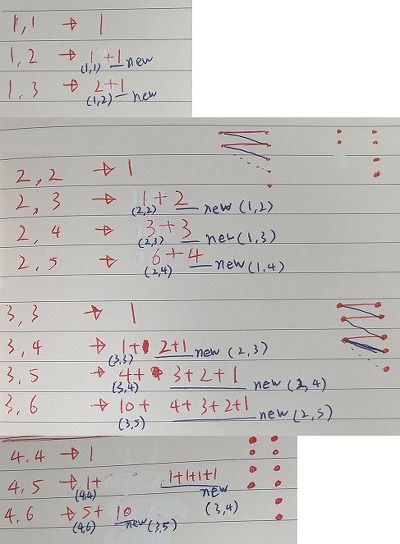 1,1 → 1
1,2 → 1+1
(1,1) new
1.3 → 2+1
(1,2) new
2,2 → 1
2,3 → 1+2
(2,2) new (1,2)
2,4 → 3+3
(2,3) new (1,3)
2,5 → 6+4
(2,4) new (1.4)
3,3 → 1
3,4 → 1+ 2+1
(3,3) new (2,3)
3,5 → 4+ 3+2+1
(3,4) new (2,4)
3,6 → 10+ 4+3+2+1
(3,5) new (2,5)
4.4 → 1
4,5 → 1+ 1+1+1+1
(4,4) new (3,4)
4,6 → 5+ 10
(4,6) new (3,5)